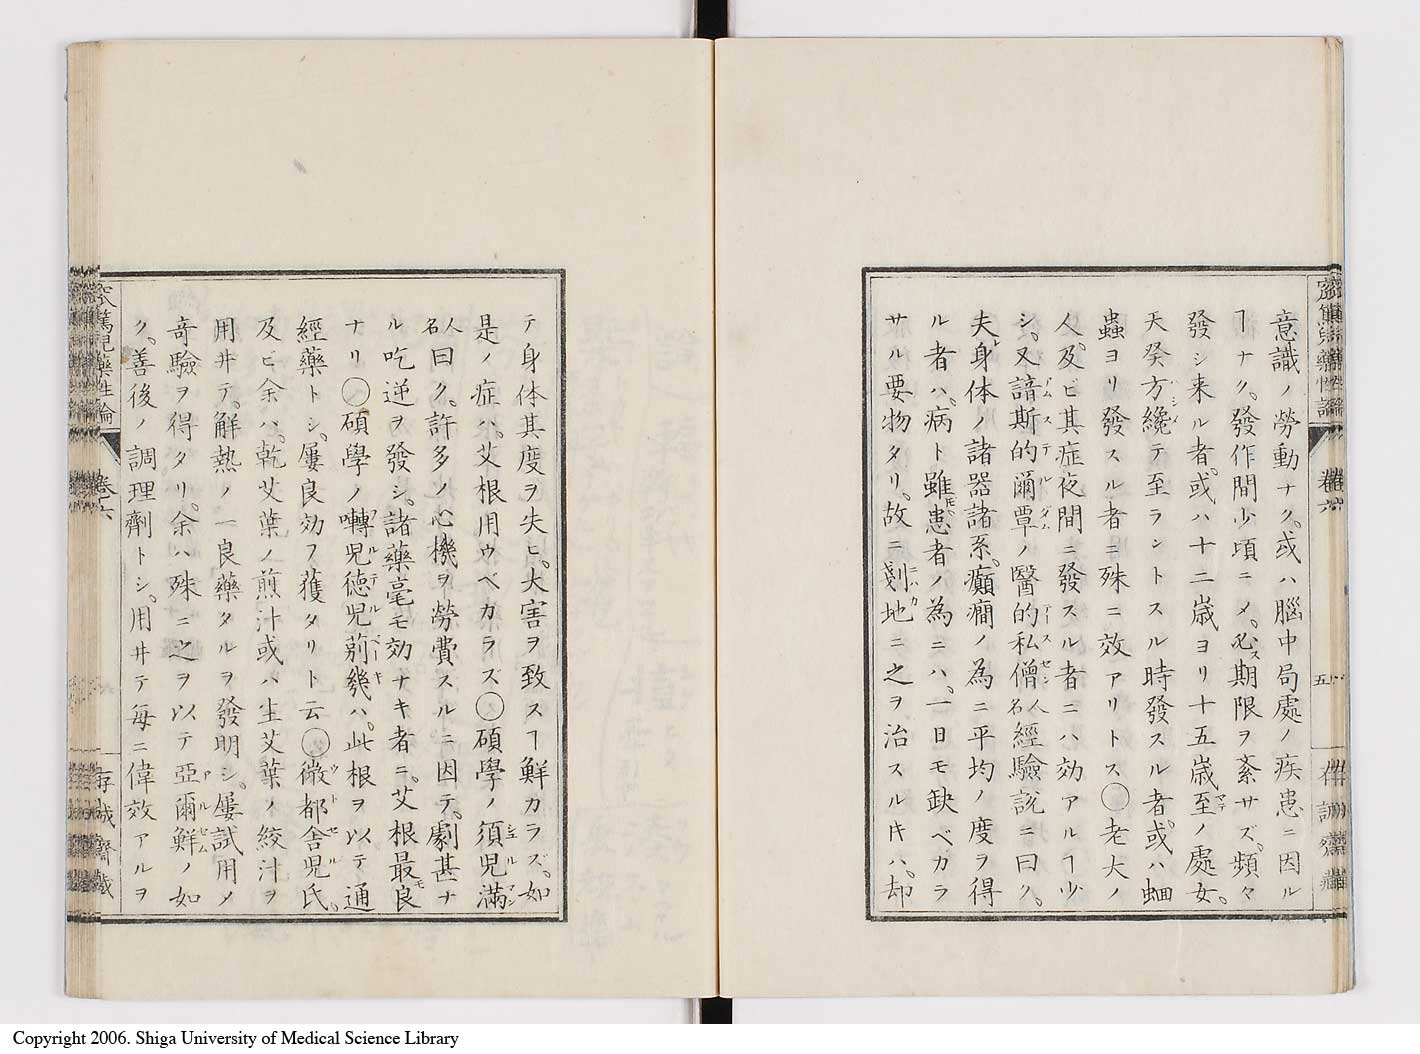 意識ノ勞動ナク。或ハ腦中局處ノ疾患ニ因ル
ヿナク。發作間少頃ニメ。必ス期限ヲ紊サズ。頻々
發シ来ル者。或ハ十二歳ヨリ十五歳至マテノ處女。
天癸方纔ハジメテ至ラントスル時發スル者。或ハ蛔
蟲ヨリ發スル者ニ殊ニ效アリトス○老大ノ
人。及ビ其症夜間ニ發スル者ニハ効アルヿ少
シ。又諳斯的爾覃アムステルダムノ醫的私僧テースセン人名經驗説ニ曰ク。
夫レ身体ノ諸器諸系。癲癇ノ為ニ平均ノ度ヲ得
ル者ハ。病ト雖モ患者ノ為ニハ。一日モ缺ベカラ
サル要物タリ。故ニ劇地ニハカニ之ヲ治スルキハ。却
密篤児藥性論
卷六
五
存誠齋藏
テ身体其度ヲ失ヒ。大害ヲ致スヿ鮮カラズ。如
是ノ症ハ。艾根用ウベカラズ○碩學ノ須児満シュルマン
人名曰ク。許多ノ心機ヲ勞費スルニ因テ。劇甚ナ
ル吃逆ヲ發シ。諸藥毫モ効ナキ者ニ。艾根最モ良
ナリ○碩學ノ囀児徳児萠幾ワルテルベーキハ。此根ヲ以テ通
經藥トシ。屢良効ヲ獲タリト云○微都舎児ウトセル氏。
及ビ余ハ。乾艾葉ノ煎汁或ハ生艾葉ノ絞汁ヲ
用井テ。解熱ノ一良藥タルヲ發明シ。屢試用メ
奇驗ヲ得タリ。余ハ殊ニ之ヲ以テ亞爾鮮アルセムノ如
ク。善後ノ調理劑トシ。用井テ毎ニ偉效アルヲ
密篤児藥性論
卷六
存誠齋藏
Copyright 2006. Shiga University of Medical Science Library